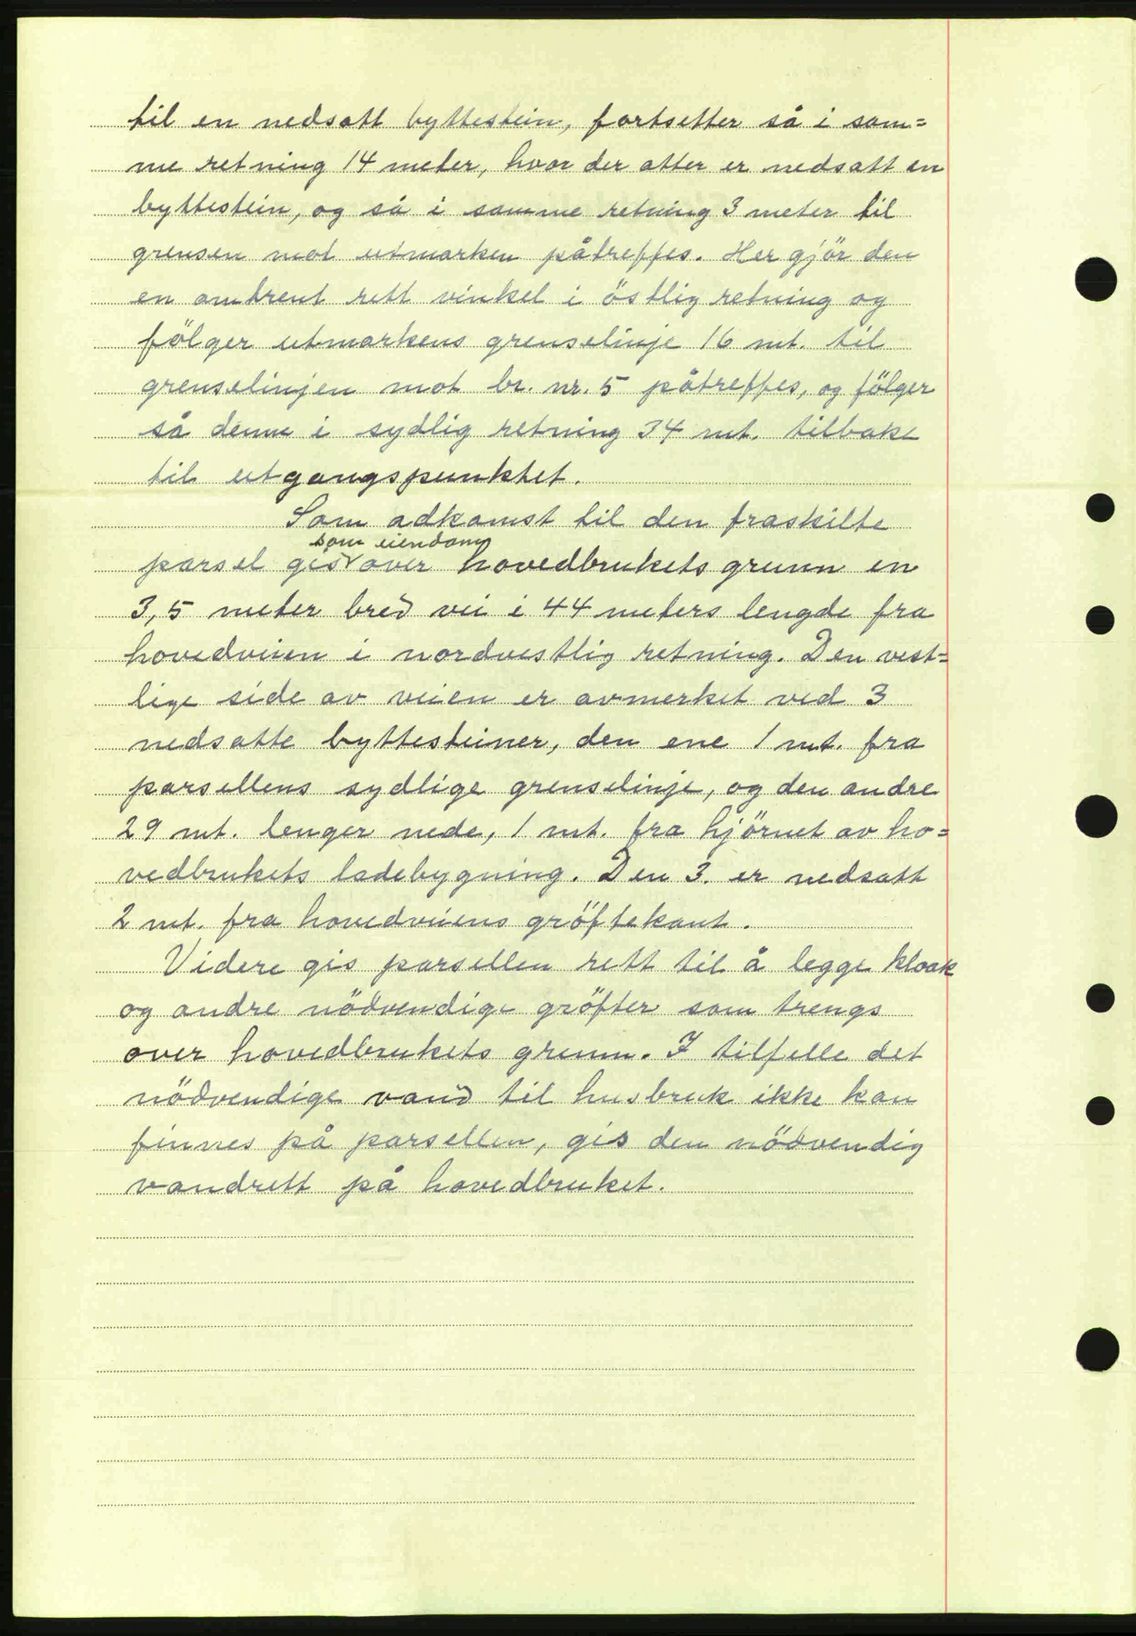 til en nedsatt byttestein, fortsetter så i sam=
me retning 14 meter, hvor der atter er nedsatt en
byttestein, og så i samme retning 3 meter til
grensen mot utmarken påtreffes. Her gjör den
en omtrent rett vinkel i östlig retning og
fölger utmarkens grenselinje 16 mt. til
grenselinjen mot br. nr. 5 påtreffes, og fölger
så denne i sydlig retning 34 mt. tilbake
til utgangspunktet.
Som adkomst til den fraskilte
som eiendom
parsel gis over hovedbrukets grunn en
3,5 meter bred vei i 44 meters lengde fra
hovedveien i nordvestlig retning. Den vest=
lige side av veien er avmerket ved 3
nedsatte byttesteiner, den ene 1 mt. fra
parsellens sydlige grenselinje, og den andre
29 mt. lenger nede, 1 mt. fra hjörnet av ho=
vedbrukets ladebygning. Den 3. er nedsatt
2 mt. fra hovedveiens gröftekant.
Videre gis parsellen rett til å legge kloak
og andre nödvendige gröfter som trengs
over hovedbrukets grunn. I tilfelle det
nödvendige vand til husbruk ikke kan
finnes på parsellen, gis den nödvendig
vandrett på hovedbruket.